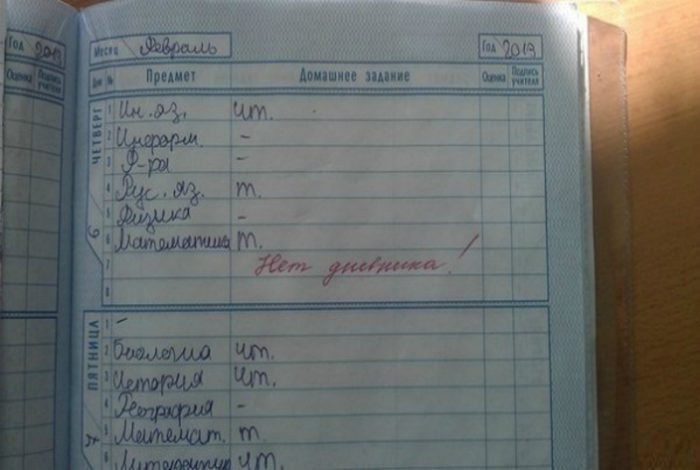 Год 2013
Оценка Подпись учителя
Месяц Февраль Год 2013
Дни № Предмет Домашнее задание Оценка Подпись учителя
ЧЕТВЕРГ 6
1 Ин. яз. чт.
2 Информ. -
3 Ф-ра -
4 Рус. яз. т.
5 Физика -
6 Математика т.
7 Нет дневника!
8
ПЯТНИЦА
1 -
2 Биология чт.
3 История чт.
4 География -
5 Математ. т.
6 чт.